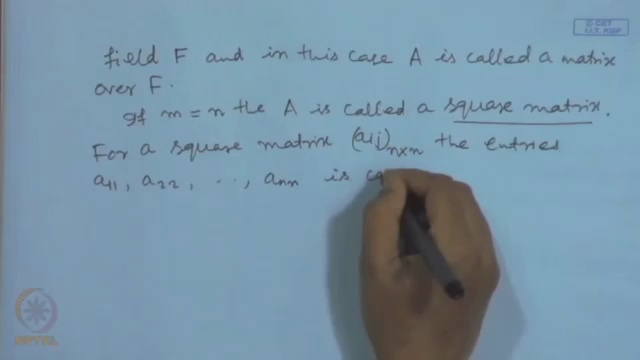 © CET
I.I.T. KGP
field F and in this case A is called a matrix
over F.
If m = n the A is called a square matrix.
For a square matrix (aij)n×n the entries
a11, a22, ..., ann is ca
NPTEL